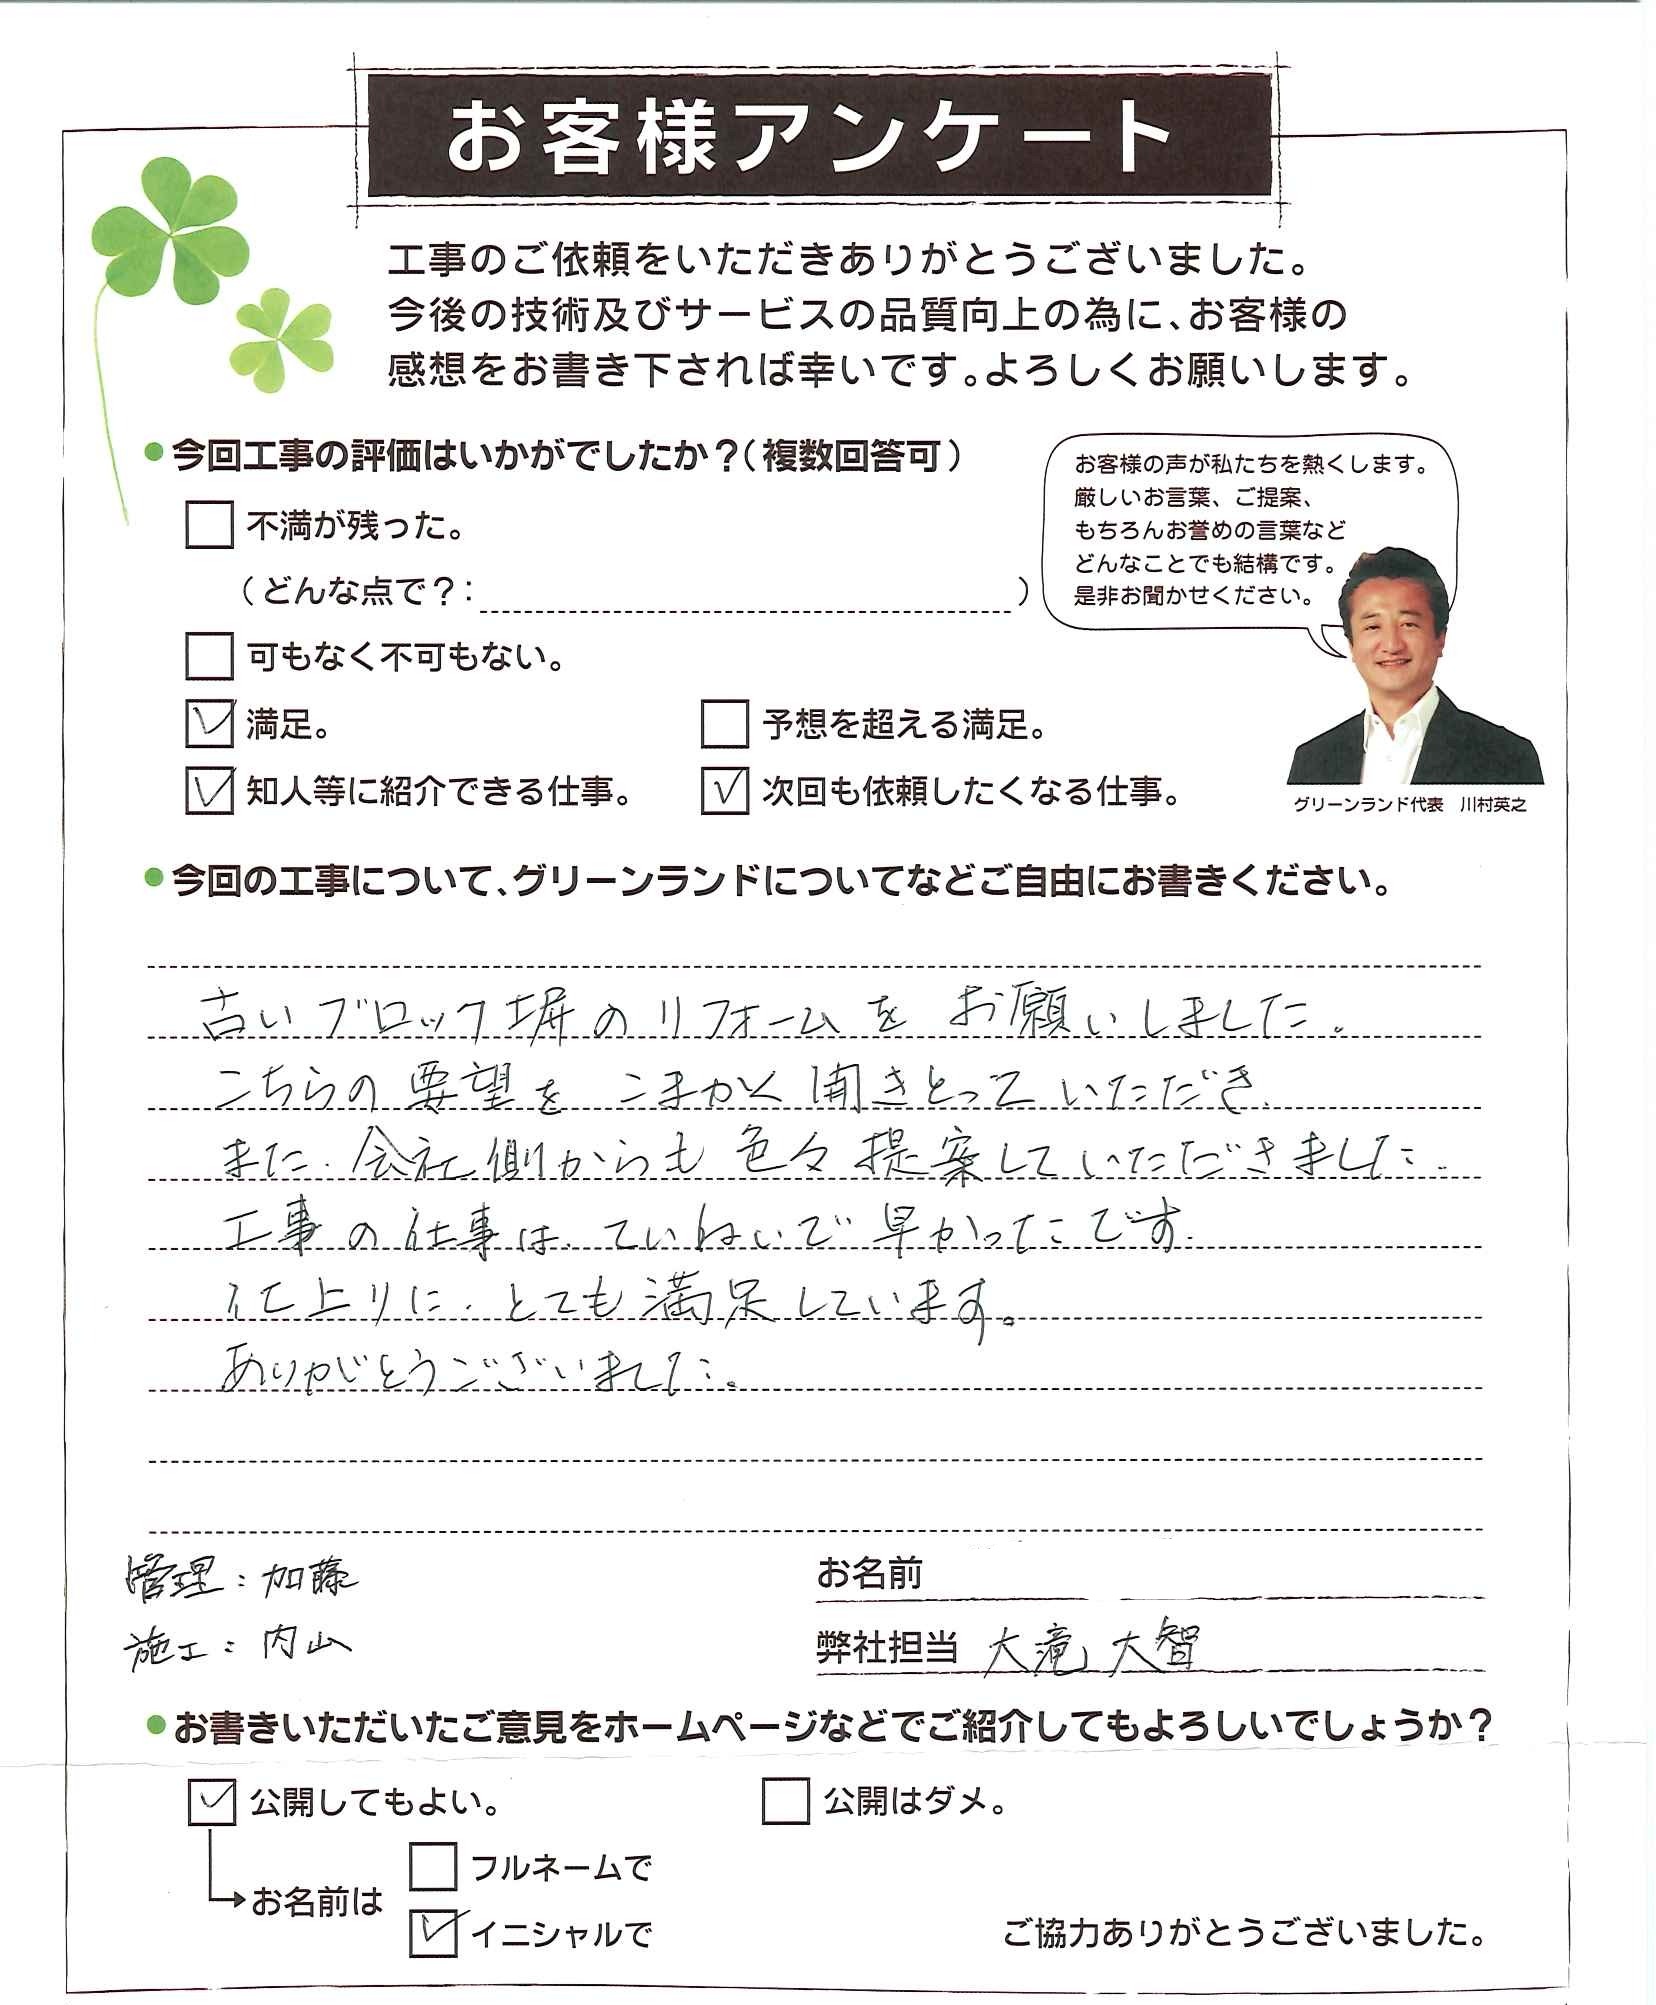 お客様アンケート
工事のご依頼をいただきありがとうございました。
今後の技術及びサービスの品質向上の為に、お客様の
感想をお書き下されば幸いです。よろしくお願いします。
●今回工事の評価はいかがでしたか？(複数回答可)
不満が残った。
(どんな点で？: )
可もなく不可もない。
満足。
予想を超える満足。
知人等に紹介できる仕事。
次回も依頼したくなる仕事。
お客様の声が私たちを熱くします。
厳しいお言葉、ご提案、
もちろんお誉めの言葉など
どんなことでも結構です。
是非お聞かせください。
グリーンランド代表　川村英之
●今回の工事について、グリーンランドについてなどご自由にお書きください。
古いブロック塀のリフォームをお願いしました。
こちらの要望をこまかく聞きとっていただき、
また、会社側からも色々提案していただきました。
工事の仕事は、ていねいで早かったです。
仕上りに、とても満足しています。
ありがとうございました。
管理：加藤
施工：内山
お名前
弊社担当 大滝 大智
●お書きいただいたご意見をホームページなどでご紹介してもよろしいでしょうか？
公開してもよい。
公開はダメ。
お名前は
フルネームで
イニシャルで
ご協力ありがとうございました。